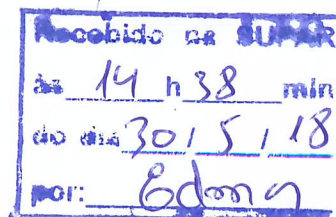 Recebido na SUPAR
às 14 h 38 min
do dia 30 / 5 / 18
por: Edma